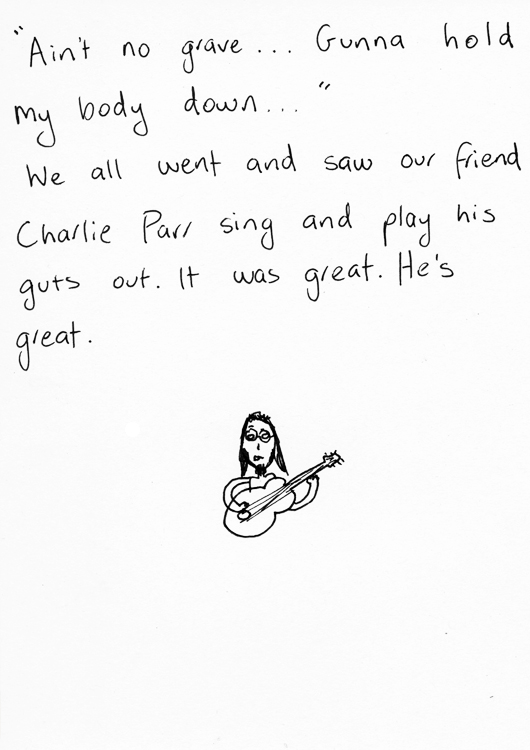 "Ain't no grave... Gunna hold
my body down..."
We all went and saw our friend
Charlie Parr sing and play his
guts out. It was great. He's
great.